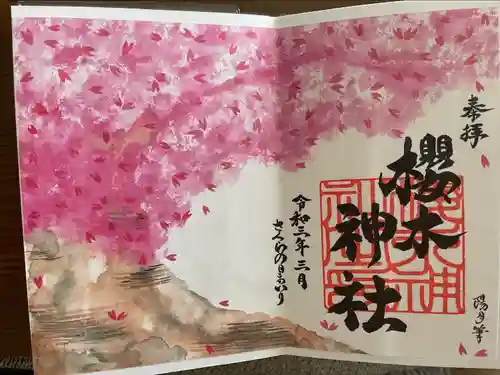 奉拝
櫻木
神社
令和三年三月
さくらの日まいり
陽月筆